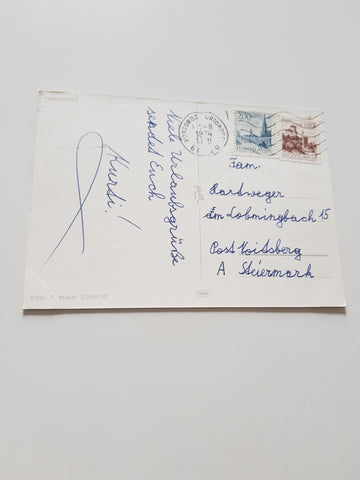 Viele Urlaubsgrüße
sendet Euch
Kurdi!
Fam.
Hardweger
Am Lobmingbach 15
Post Voitsberg
A Steiermark
Foto: F. Mauer C505/20